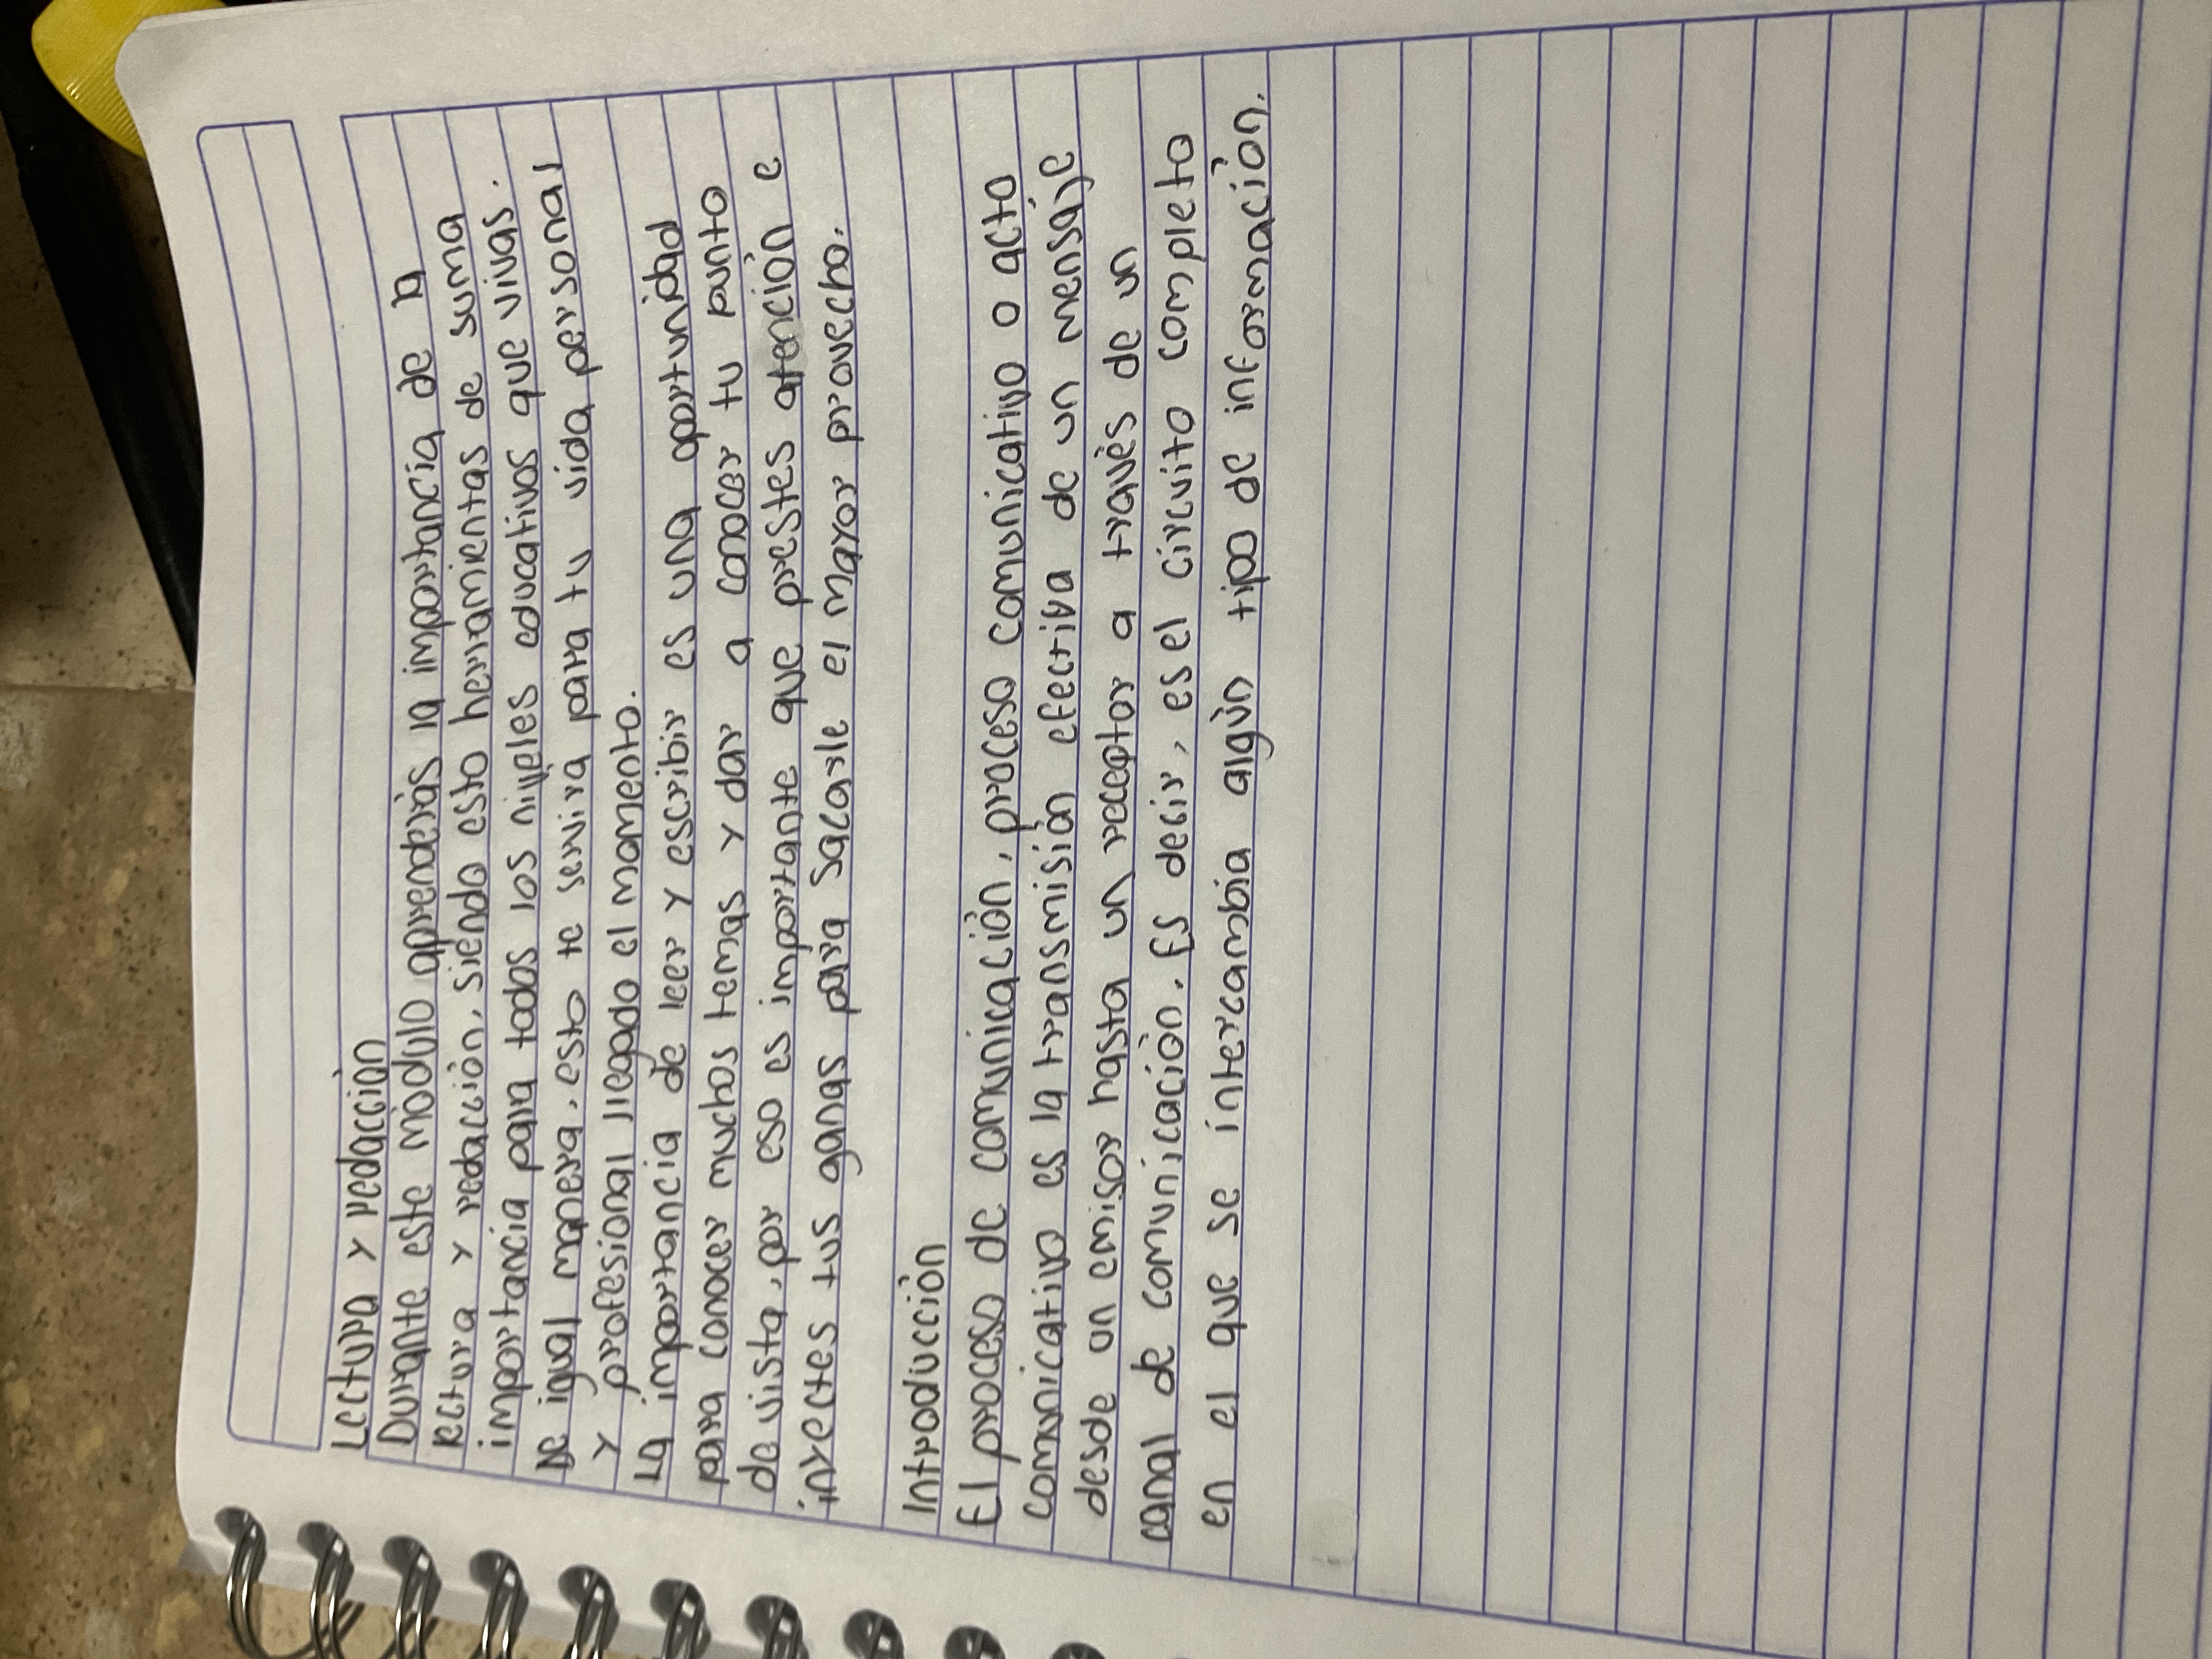 Lectura y redacción
Durante este módulo aprenderás la importancia de la
lectura y redacción, siendo esto herramientas de suma
importancia para todos los niveles educativos que vivas.
De igual manera, esto te servira para tu vida personal
y profesional llegado el momento.
La importancia de leer y escribir es una oportunidad
para conocer muchos temas y dar a conocer tu punto
de vista, por eso es importante que prestes atención e
inyectes tus ganas para sacarle el mayor provecho.
Introducción
El proceso de comunicación, proceso comunicativo o acto
comunicativo es la transmisión efectiva de un mensaje
desde un emisor hasta un receptor a través de un
canal de comunicación. Es decir, es el circuito completo
en el que se intercambia algún tipo de información.